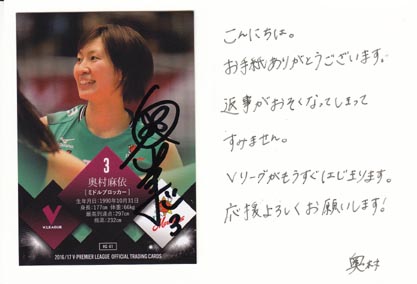 3
奥村麻依
[ミドルブロッカー]
生年月日:1990年10月31日
身長:177cm 体重:66kg
最高到達点:297cm
指高:232cm
V.LEAGUE
2016/17 V・PREMIER LEAGUE OFFICIAL TRADING CARDS
こんにちは。
お手紙ありがとうございます。
返事がおそくなってしまって
すみません。
Vリーグがもうすぐはじまります。
応援よろしくお願いします!
奥村